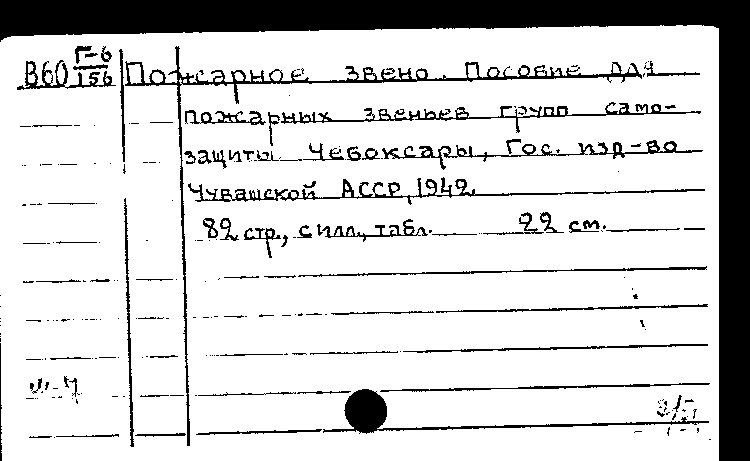 В60 Г-6/156 Пожарное звено. Пособие для
пожарных звеньев групп само-
защиты. Чебоксары, Гос. изд-во
Чувашской АССР, 1942.
82 стр., с илл., табл. 22 см.